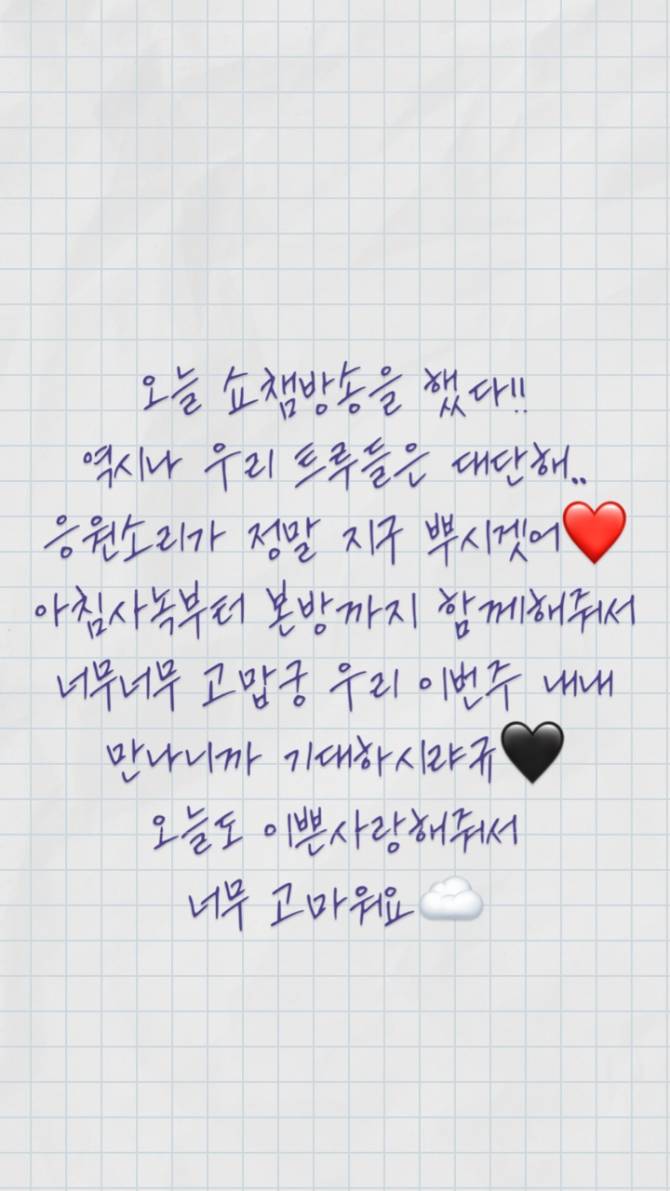 오늘 쇼챔방송을 했다!!
역시나 우리 트루들은 대단해..
응원소리가 정말 지구 뿌시겟어❤️
아침사녹부터 본방까지 함께해줘서
너무너무 고맙궁 우리 이번주 내내
만나니까 기대하시랴규🖤
오늘도 이쁜사랑해줘서
너무 고마워요☁️